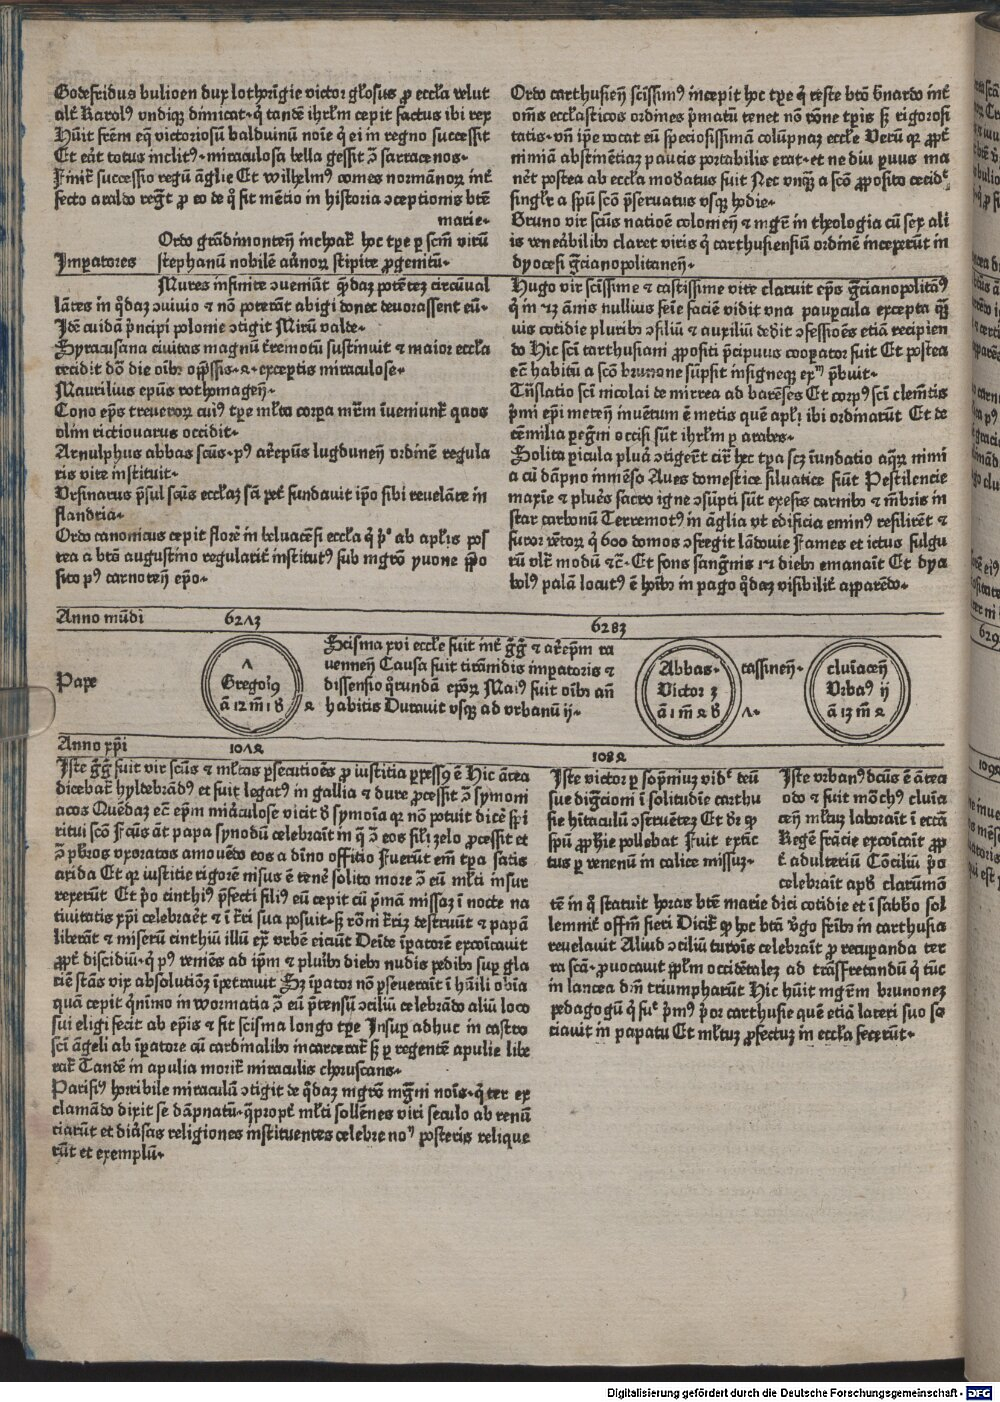 Godefridus bulioen dux lothoringie victor gl'osus ꝓ eccl'a velut
alt' Karolꝰ vndiqꝫ dimicat· q̇ tandē ihrl'm cepit factus ibi rex
Hūit frēm eqꝫ victoriosū balduinū noīe q̇ ei in regno successit
Et eāt totus inclitꝰ· miraculosa bella gessit ↄ̄ sarracenos·
Finit' successio regū āglie Et Wilhelmꝰ comes normānoꝝ int'
fecto araldo regt' ꝓ eo de q̊ fit mētio in historia ↄceptionis btē
marie·
Ordo grādimonteñ inchoat' hoc tꝑe ꝑ scm̄ virū
stephanū nobilē aūnoꝝ stipite ꝓgenitū·
Imꝑatores
Mures infinite ↄueniūt q̄daꝫ potēteꝫ circūual
lātes in q̊daꝫ ↄuiuio ⁊ nō poterāt abigi donec deuorassent eū·
Idē cuidā p̄ncipi polonie ↄtigit Mirū valde·
Syracusana ciuitas magnū t'remotū sustinuit ⁊ maior eccl'a
cecidit dō die oīb⁊ oꝑssis· ⁊· exceptis miraculose·
Maurilius epūs rothomageñ·
Cono ep̄s treueroꝝ cuiꝰ tꝑe ml'ta corpa mr̄m īueniunt' quos
olim rictiouarus occidit·
Arnulphus abbas scūs· pꝰ ar̄epūs lugduneñ ordinē regula
ris vite instituit·
Vrsinarus p̄sul scūs eccl'aꝫ scī pet' fundauit ip̄o sibi reuelāte in
flandria·
Ordo canonicus cepit florē in beluacēsi eccl'a q̇ pᵒ ab apl'is pos
tea a btō augustino regularit' institutꝰ sub mgrō yuone p̄po
sito pꝰ carnoteñ epō·
Ordo carthusieñ scīssimꝰ incepit hoc tꝑe q̇ teste btō b̄nardo int'
om̄s eccl'asticos ordines p̄matū tenet nō rōne tp̄is sꝫ rigorosi
tatis· vñ ip̄e vocat eū speciosissimā colūpnaꝫ eccl'e Verū qꝫ ꝓpt'
nimiā abstinētiaꝫ paucis portabilis erat· et ne diu ꝑuus ma
nēt postea ab eccl'a modatus fuit Nec vnqꝫ a scō ꝓposito cecidᵗ
singl'r a spū scō p̄seruatus vsqꝫ hodie·
Bruno vir scūs natioē coloneñ ⁊ mgr̄ in theologia cū sex ali
is veneābilib⁊ claret viris q̇ carthusiensiū ordinē inceperūt in
dyocesi gr̄cianopolitaneñ·
Hugo vir scīssime ⁊ castissime vite claruit ep̄s gr̄cianopolitāꝰ
q̇ in 42 ānis nullius feīe faciē vidit vna pauꝑcula excepta qꝫ
uis cotidie pluribꝫ ↄsiliū ⁊ auxiliū dedit ↄfessiōes etiā recipien
do Hic scī carthusiani ꝓpositi p̄cipuus cooꝑator fuit Et postea
eē habitū a scō brunone sūpsit insignequꝫ exᵐ p̄buit·
Tn̄slatio scī nicolai de mirrea ad barēses Et corpꝰ scī clemētis
p̄mi ep̄i meteñ inuētum ē metis quē apl'i ibi ordinarūt Et de
cēmilia ꝑegr̄ni occisi sūt ihrl'm ꝑ arabes·
Solita ꝑicula plura ↄtigerūt cir' hec tꝑa scꝫ īundatio aq̄ꝝ nimi
a cū dāpno inmēso Aues domestice siluatice fiūt Pestilencie
maxīe ⁊ plures sacro igne ↄsūpti sūt exesis carnib⁊ ⁊ mēbris in
star carbonū Terremotꝰ in āglia vt edificia eminꝰ resilirēt ⁊
furor vētoꝝ q̇ 600 domos ↄfregit lādouie Fames et ictus fulgu
rū vlt' modū ⁊c̄· Et fons sangūnis 14 dieb⁊ emanaīt Et dya
bolꝰ palā locutꝰ ē hoīb⁊ in pago q̊daꝫ visibilit' apparēdo·
Anno mūdi
6273
6283
Pape
7
Gregoiꝰ
ā 12 m̄ 1 d̄ 4
Scisma xvi eccl'e fuit int' gr̄g̃ ⁊ ar̄epm̄ ra
venneñ Causa fuit tirānidis imꝑatoris ⁊
dissensio q̊rundā epoꝝ Maiꝰ fuit oīb⁊ añ
habitis Durauit vsqꝫ ad vrbanū ij·
Abbas·
Victor 3
ā 1 m̄ 4 d̄
cassineñ·
7·
cluīaceñ
Vrbaꝰ ij
ā 13 m̄ 4
Anno xp̄i
1074
1084
Iste gr̄g̃ fuit vir scūs ⁊ ml'tas ꝑsecutiōes ꝓ iustitia ꝑpessꝰ ē Hic ātea
dicebat' hyldebrādꝰ et fuit legatꝰ in gallia ⁊ dure ꝓcessit ↄ̄ symoni
acos Quēdaꝫ ec̄ epm̄ miāculose vicit d̄ symoīa qꝫ nō potuit dicē sp̄i
ritui scō Fc̄us āt papa synodū celebraīt in q̇ ↄ̄ eos fil'i zelo ꝓcessit et
ↄ̄ p̄bros vxoratos amouēdo eos a dīno offitio Fuerūt em̄ tꝑa satis
arida Et qꝫ iustitie rigorē nisus ē tenē solito more ↄ̄ eū ml'ti insur
rexerūt Et p̄o cinthiꝰ p̄fecti filiꝰ eū cepit cū p̄mā missaꝫ ī nocte na
tiuitatis xp̄i celebraēt ⁊ ī t'ri sua posuit· sꝫ rōni t'riꝫ destruūt ⁊ papā
liberāt ⁊ miserū cinthiū illū ex̄ vrbē eiciūt Deīde īꝑatorē excoīcauit
ꝓpt' discidiū· q̇ pꝰ veniēs ad ip̄m ⁊ plurīb⁊ dieb⁊ nudis pedib⁊ suꝑ gla
ciē stās vix absolutiōꝫ īpetrauit Sꝫ īꝑator nō ꝑseuerait ī hūili obīa
quā cepit q̇nīmo in wormatia ↄ̄ eū p̄tensū ↄciliū celebrādo aliū loco
sui eligi fecit ab ep̄is ⁊ fit scisma longo tꝑe Insuꝑ adhuc in castro
scī āgeli ab īꝑatore cū cardinalib⁊ incarcerat' sꝫ ꝑ regentē apulie libe
rat' Tandē in apulia morit' miraculis choruscans·
Parisiꝰ horribile miraculū ↄtigit de q̊daꝫ mgrō mg̃ni noīs· q̇ ter ex
clamādo dixit se dāpnatū· q̇propt' ml'ti sollēnes viri seculo ab renū
ciarūt et diūsas religiones instituentes celebre noᵐ posteris relique
rūt et exemplū·
Iste victor ꝑ sop̄niuꝫ vidᵗ ceū
sue digr̄cioni ī solitudīe carthu
sie hītaculū ↄstruēteꝫ Et dr̄ qꝫ
spū ꝓph̄ie pollebat Fuit extīc
tus ꝑ venenū in calice missuꝫ·
Iste vrbanꝰ dc̄us ē ātea
odo ⁊ fuit mōchꝰ cluīa
ceñ ml'tuꝫ laboraīt ī eccā
Regē frācie excoīcaīt ꝓp
t' adulteriū Cōciliū p̄o
celebraīt apd̄ clarūmō
tē in q̇ statuit horas btē marie dici cotidie et ī sabb̄o sol
lemnit' offm̄ fieri Dicit' ꝙ hoc btā v̄go frīb⁊ in carthusia
reuelauit Aliud ↄciliū turoīs celebraīt ꝓ recuꝑanda ter
ra scā· ꝓuocauit ppl'm occidētaleꝫ ad trāsfretandū q̇ tūc
in lancea dn̄i triumpharūt Hic hūit mgr̄m brunoneꝫ
pedagogū q̇ fuᵗ p̄mꝰ p̄or carthusie quē etiā lateri suo so
ciauit in papatu Et ml'tuꝫ ꝓfectuꝫ in eccl'a fecerūt·
Digitalisierung gefördert durch die Deutsche Forschungsgemeinschaft · DFG